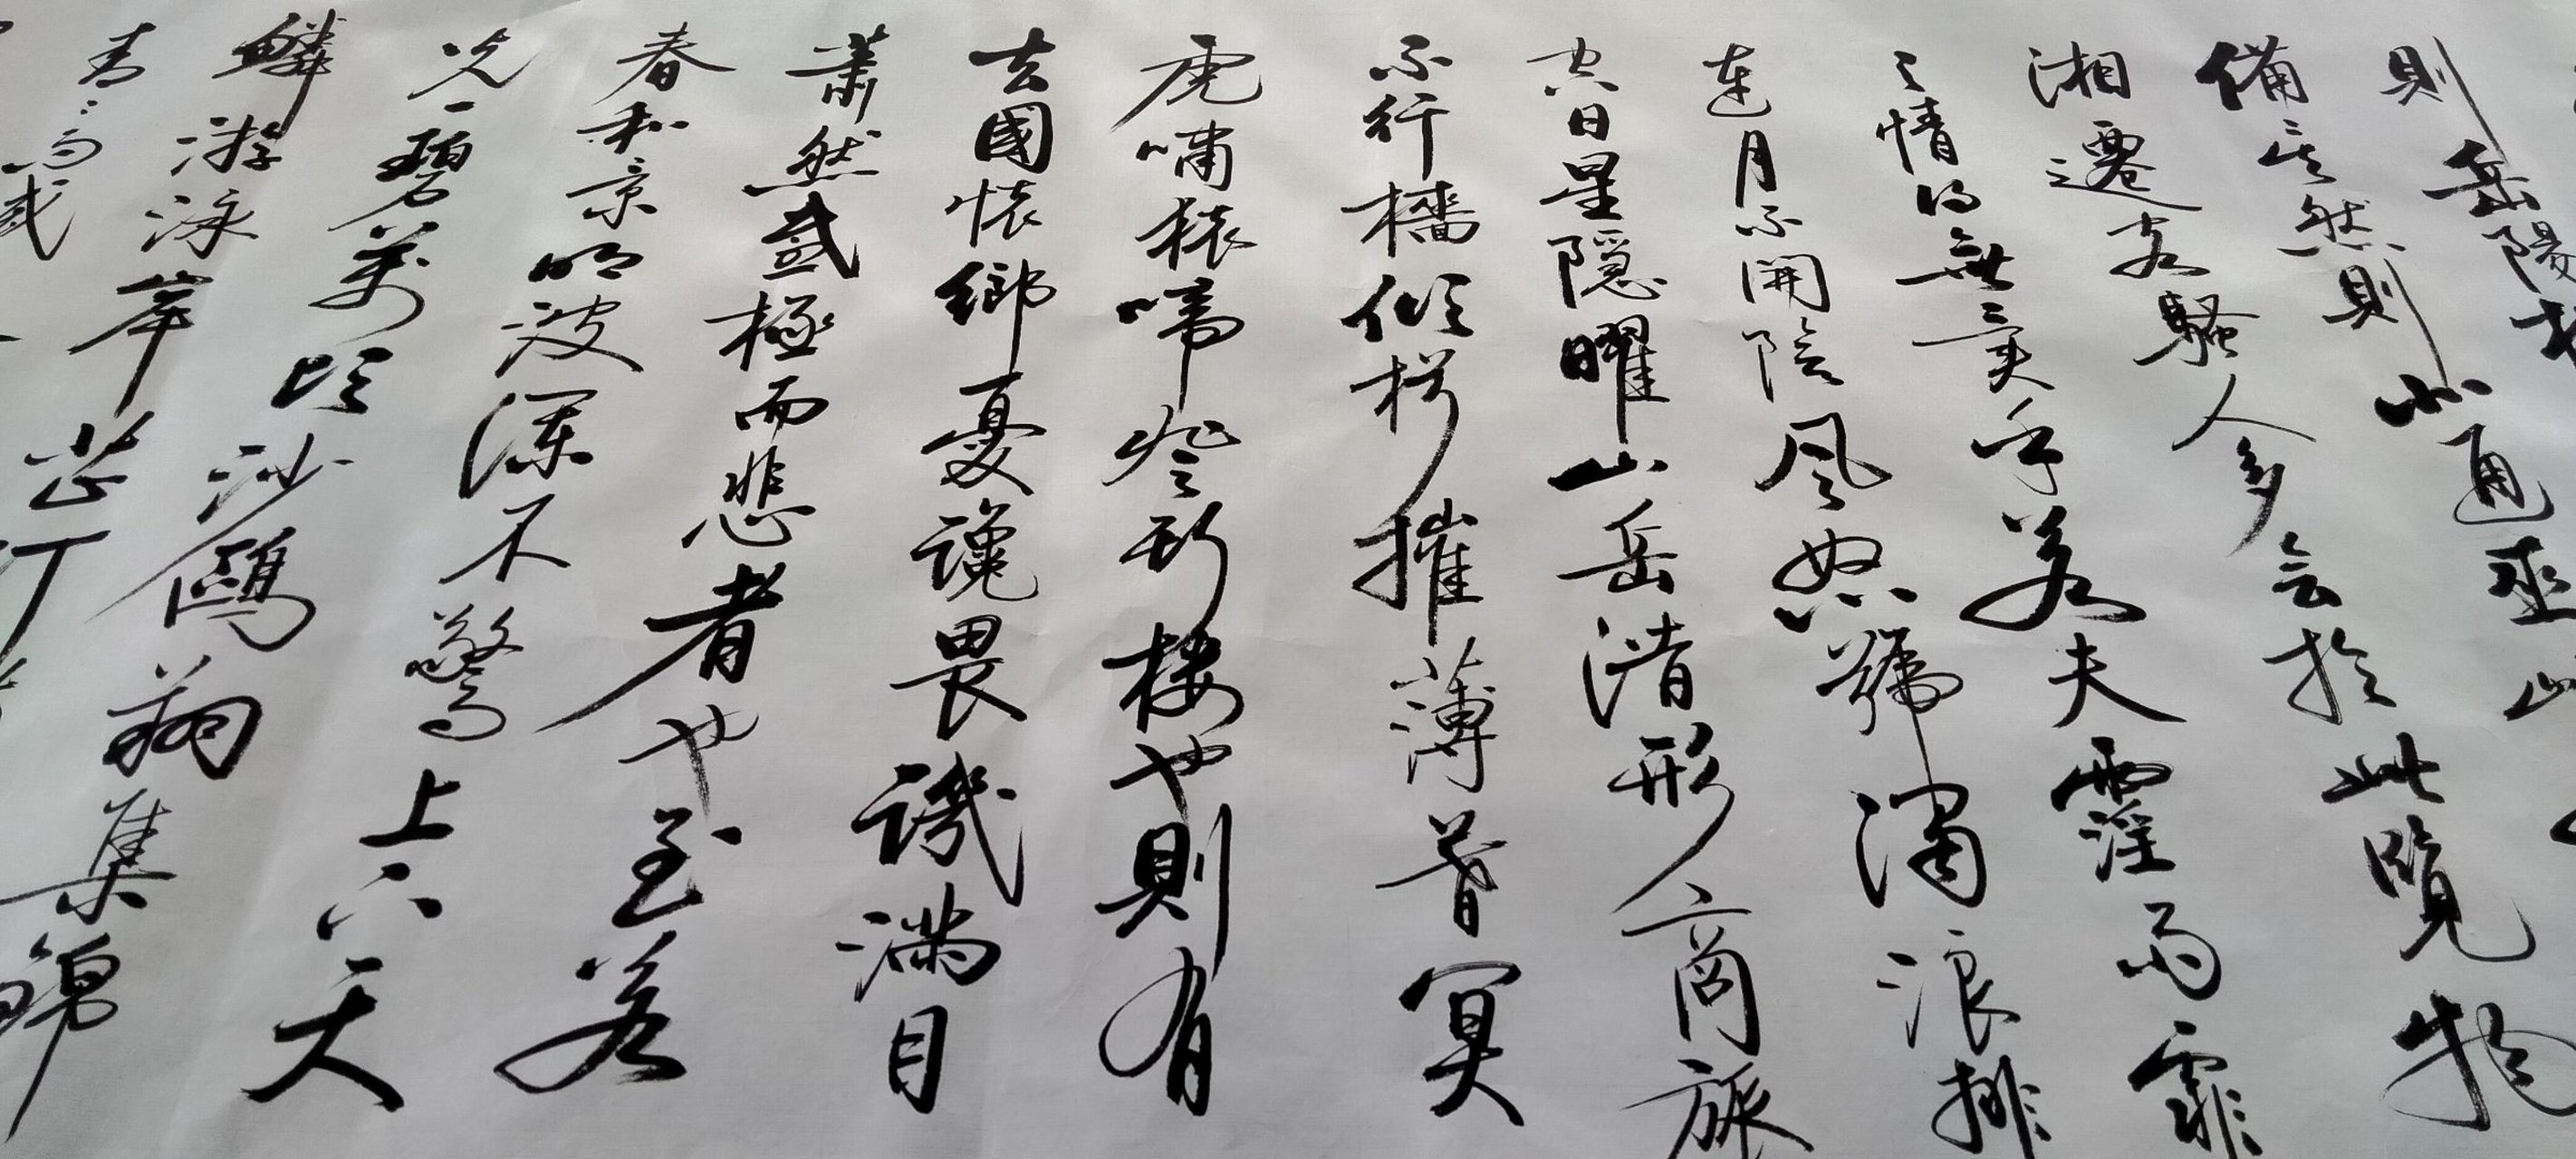 則岳陽樓
備矣然則北通巫峽
湘遷客騷人多会於此覽物
之情得無異乎若夫霪雨霏
連月不開陰風怒號濁浪排
空日星隱曜山岳潛形商旅
不行檣傾楫摧薄暮冥
虎嘯猿啼登斯樓也則有
去國懷鄉憂讒畏譏滿目
蕭然感極而悲者也至若
春和景明波瀾不驚上下天
光一碧萬頃沙鷗翔集錦
鱗游泳岸芷汀
青青而或